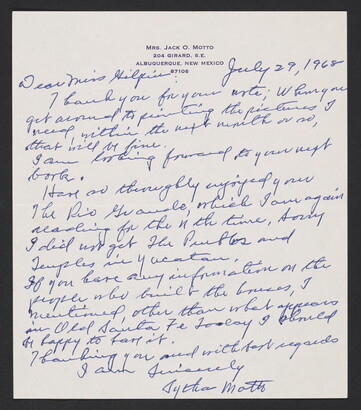 MRS. JACK O. MOTTO
204 GIRARD, S.E.
ALBUQUERQUE, NEW MEXICO
87106
July 29, 1968
Dear Miss Gilpin:
Thank you for your note. When you
get around to printing the pictures I
need within the next month or so,
that will be fine.
I am looking forward to your next
book.
Have so thoroughly enjoyed your
The Rio Grande, which I am again
reading for the nth time, Sorry
I did not get The Pueblos and
Temples in Yucatan.
If you have any information on the
people who built the houses, I
mentioned, other than what appears
in Old Santa Fe Today I should
be happy to have it.
Thanking you and with best regards
I am Sincerely
Sytha Motto